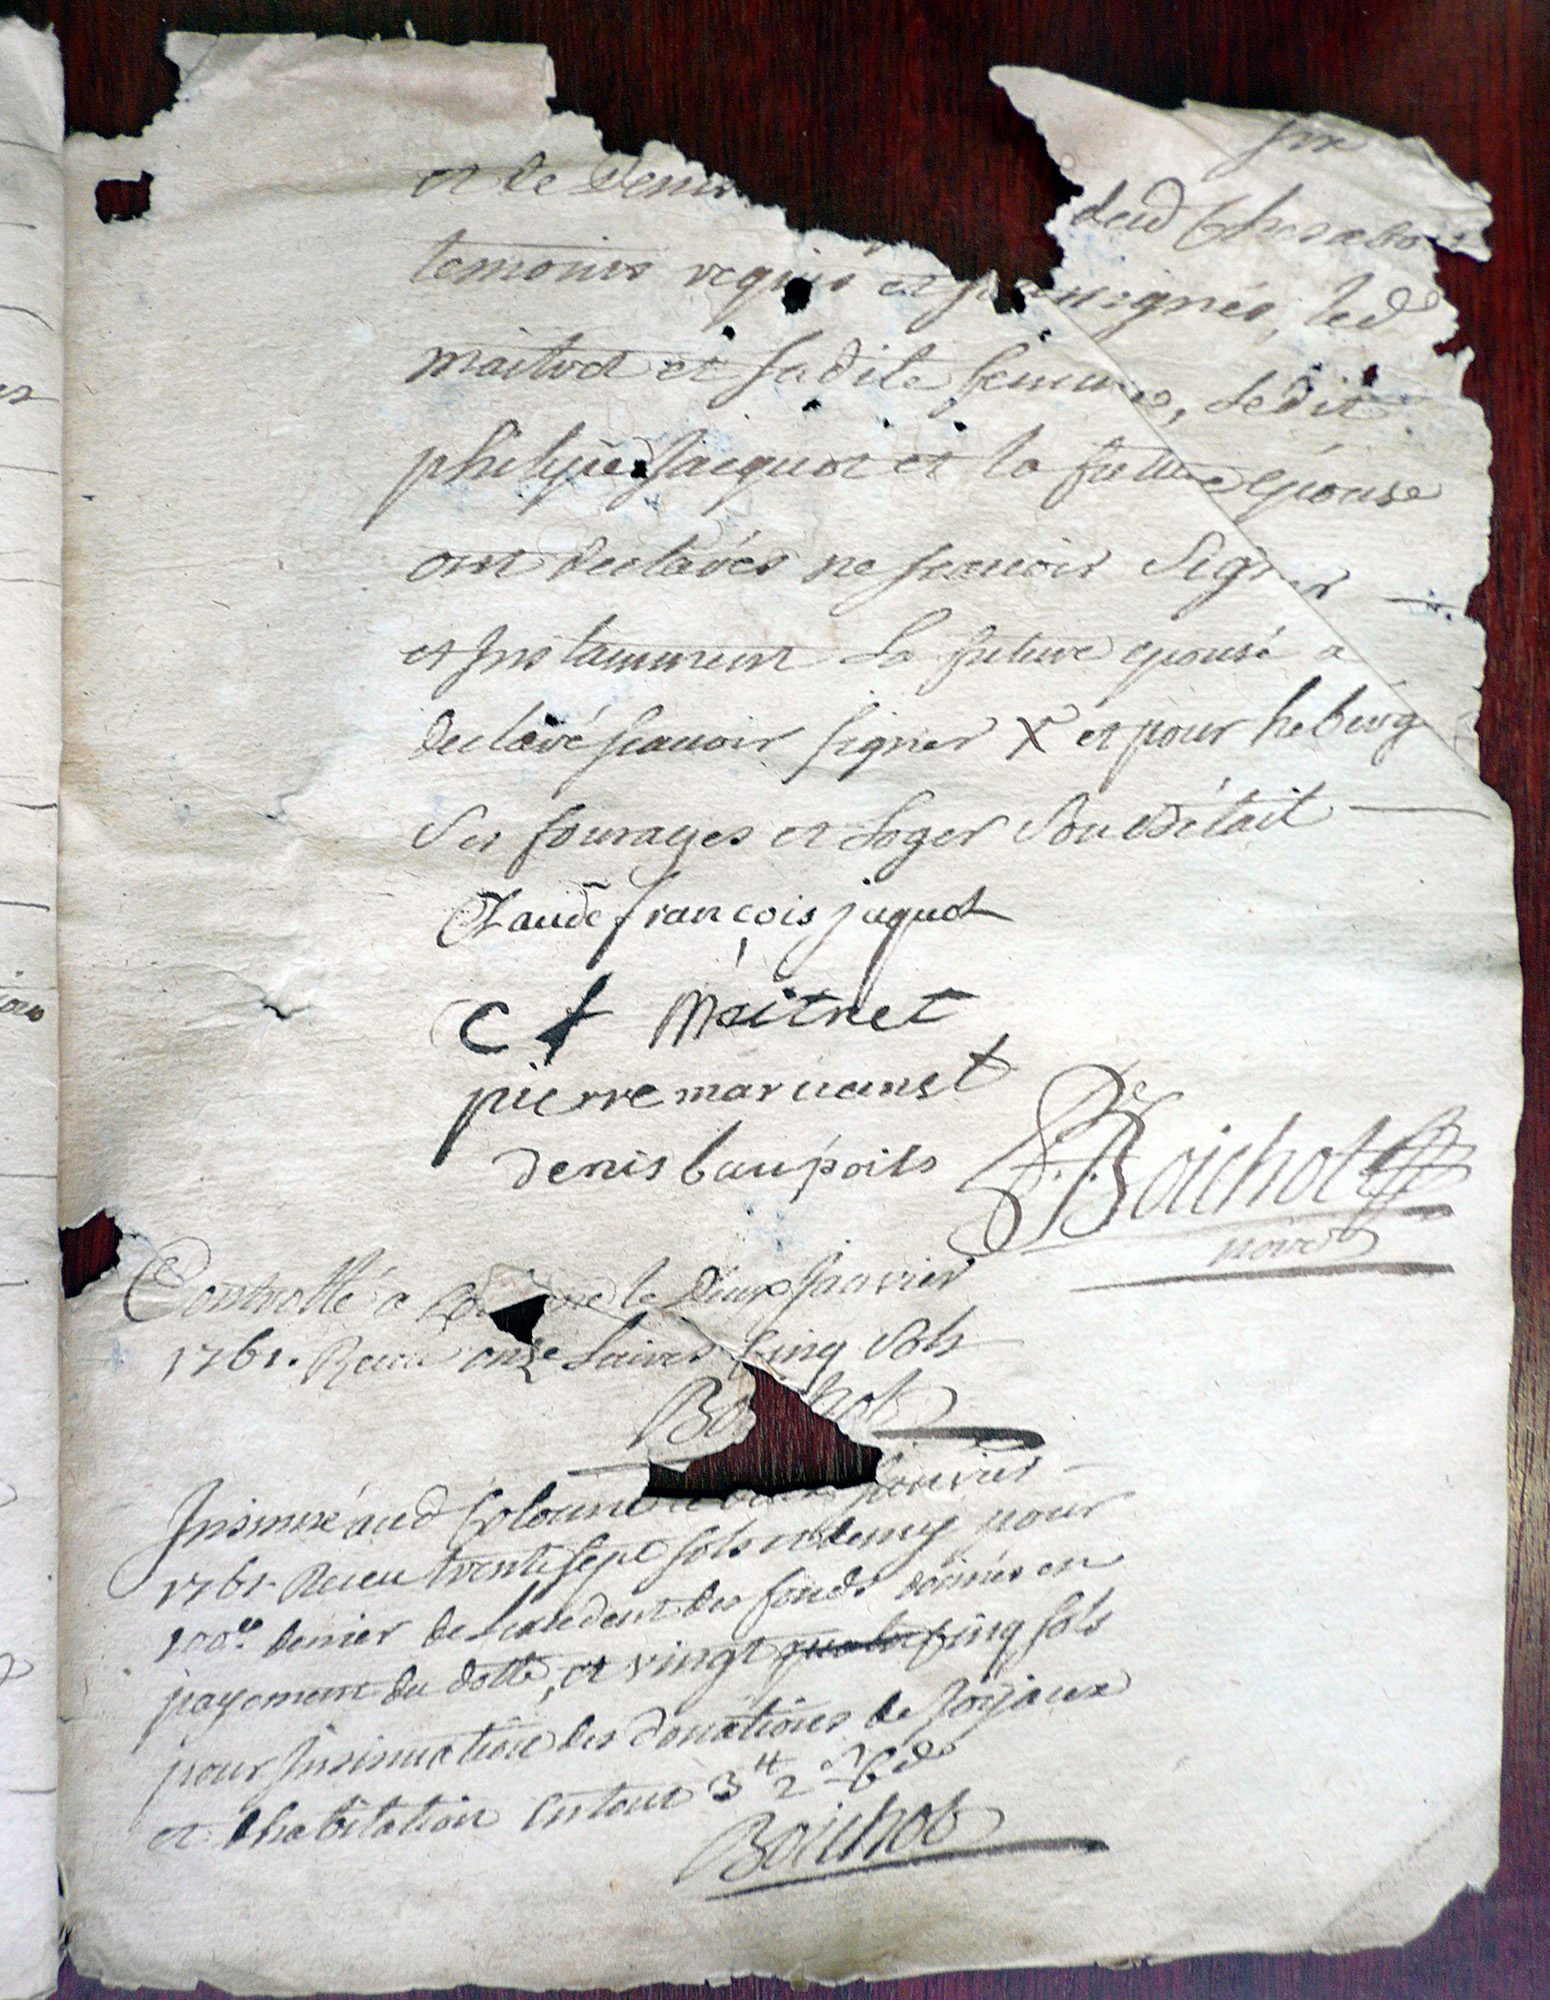 et de Denis deud
temoins requis et soussignés, led
maitret et sadite femme, ledit
philipe Jacquot et la future épouse
ont declarés ne scavoir Signer
et Instamment La future epouse a
declaré scavoir signer X et pour heberg
Ses fourages et Loger Son détait
Claude françois jaquot
C f Maitret
pierre
denis baupoils
Boichot
Controllé a le deux Janvier
1761. Receu onze Livres Cinq Sols
Boichot
Insinué aud Janvier
1761. Receu trente sept sols et demy pour
100e. denier de des fonds donnés en
payement du dotte, et vingt quatre cinq sols
pour Insinuation des donations de Joyaux
et d'habitation En tout 3tt 2s 6d
Boichot